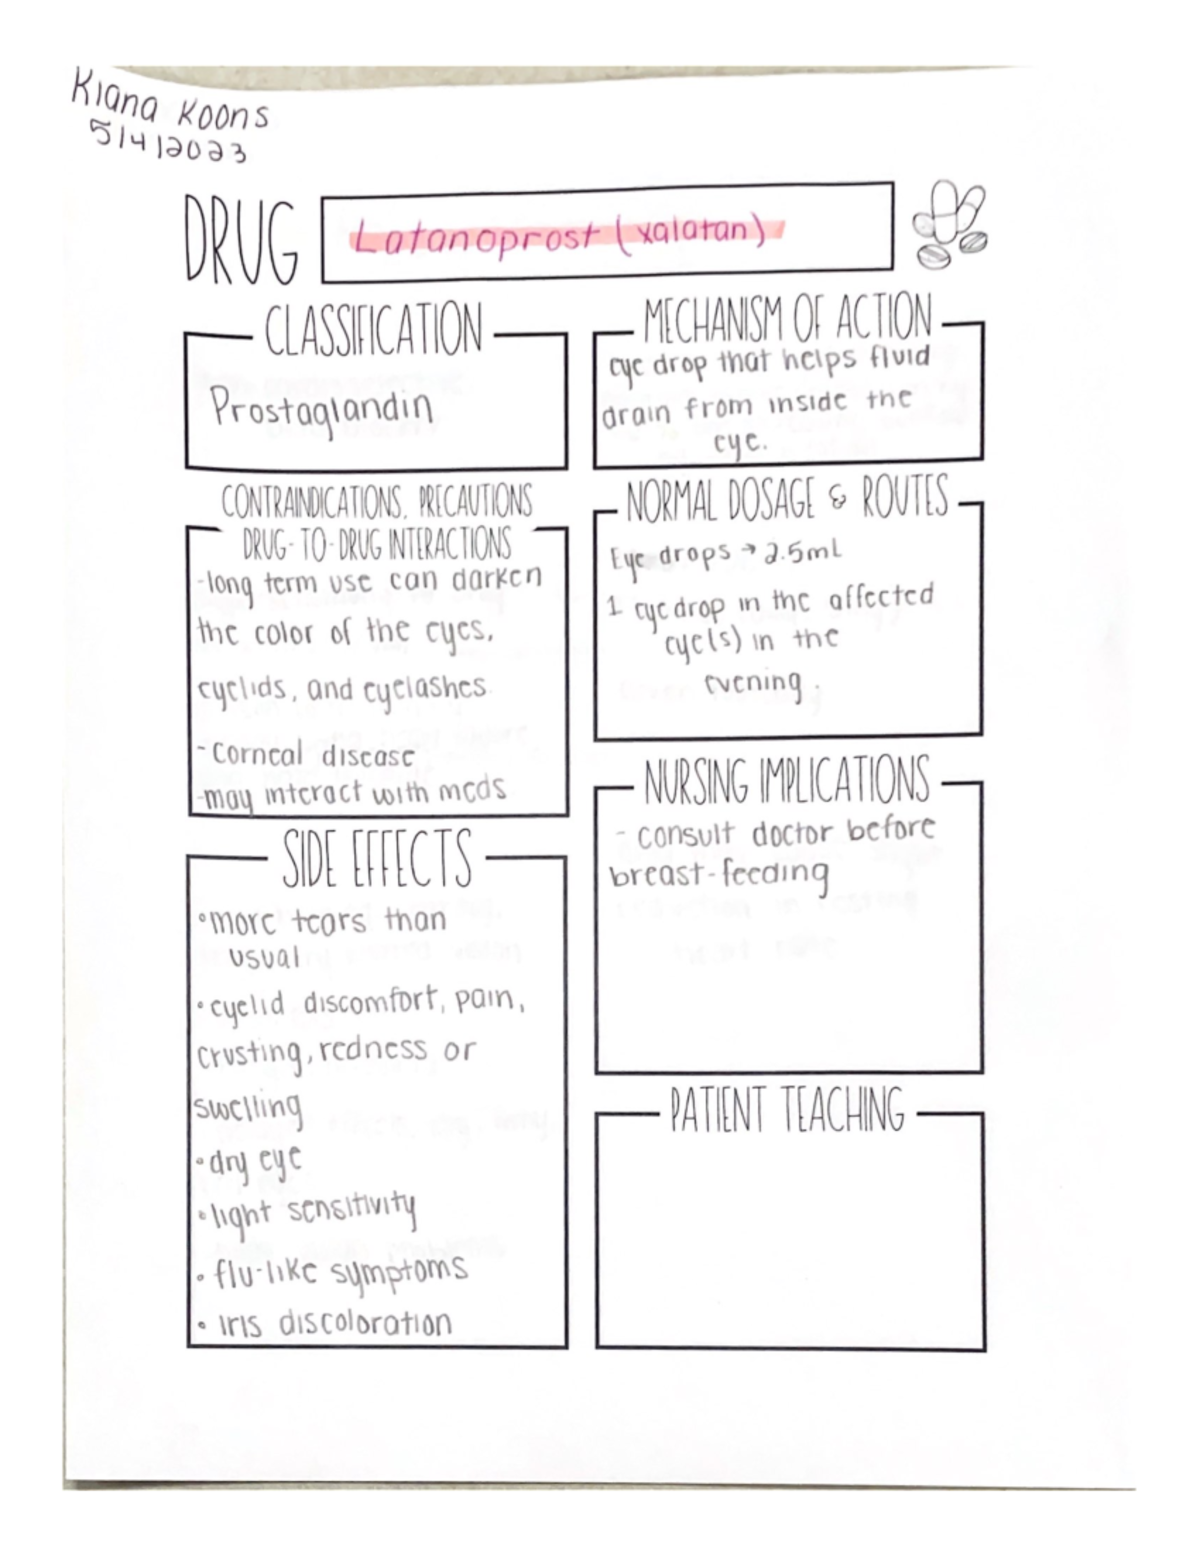 Kiana Koons
5/4/2023
DRUG
Latanoprost (xalatan)
CLASSIFICATION
Prostaglandin
MECHANISM OF ACTION
eye drop that helps fluid
drain from inside the
eye.
CONTRAINDICATIONS, PRECAUTIONS
DRUG-TO-DRUG INTERACTIONS
-long term use can darken
the color of the eyes,
eyelids, and eyelashes.
- corneal disease
-may interact with meds
NORMAL DOSAGE & ROUTES
Eye drops → 2.5mL
1 eye drop in the affected
eye(s) in the
evening.
SIDE EFFECTS
•more tears than
usual
•eyelid discomfort, pain,
crusting, redness or
swelling
•dry eye
•light sensitivity
• flu-like symptoms
• iris discoloration
NURSING IMPLICATIONS
- consult doctor before
breast-feeding
PATIENT TEACHING